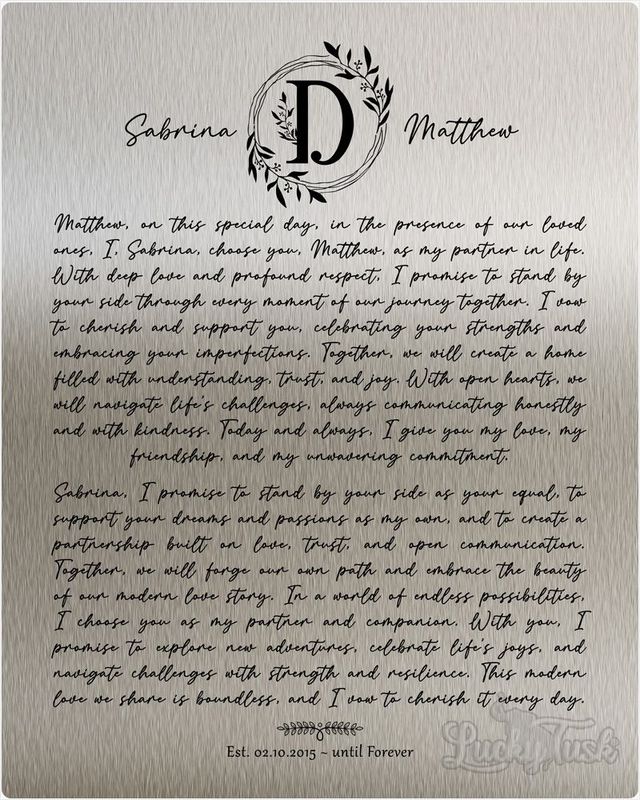 Sabrina D Matthew
Matthew, on this special day, in the presence of our loved
ones, I, Sabrina, choose you, Matthew, as my partner in life.
With deep love and profound respect, I promise to stand by
your side through every moment of our journey together. I vow
to cherish and support you, celebrating your strengths and
embracing your imperfections. Together, we will create a home
filled with understanding, trust, and joy. With open hearts, we
will navigate life's challenges, always communicating honestly
and with kindness. Today and always, I give you my love, my
friendship, and my unwavering commitment.
Sabrina, I promise to stand by your side as your equal, to
support your dreams and passions as my own, and to create a
partnership built on love, trust, and open communication.
Together, we will forge our own path and embrace the beauty
of our modern love story. In a world of endless possibilities,
I choose you as my partner and companion. With you, I
promise to explore new adventures, celebrate life's joys, and
navigate challenges with strength and resilience. This modern
love we share is boundless, and I vow to cherish it every day.
Est. 02.10.2015 ~ until Forever
LuckyTusk